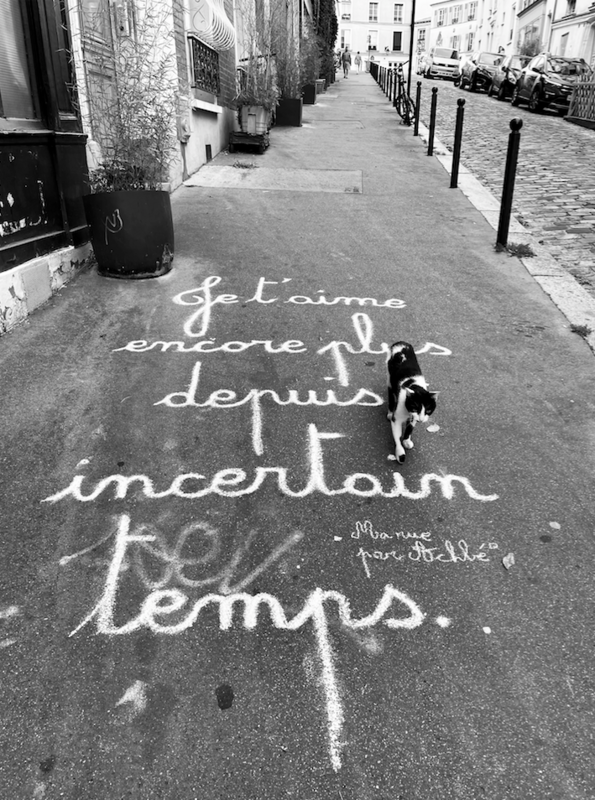 Je t'aime
encore plus
depuis
incertain
temps.
Ma rue
par Achbé